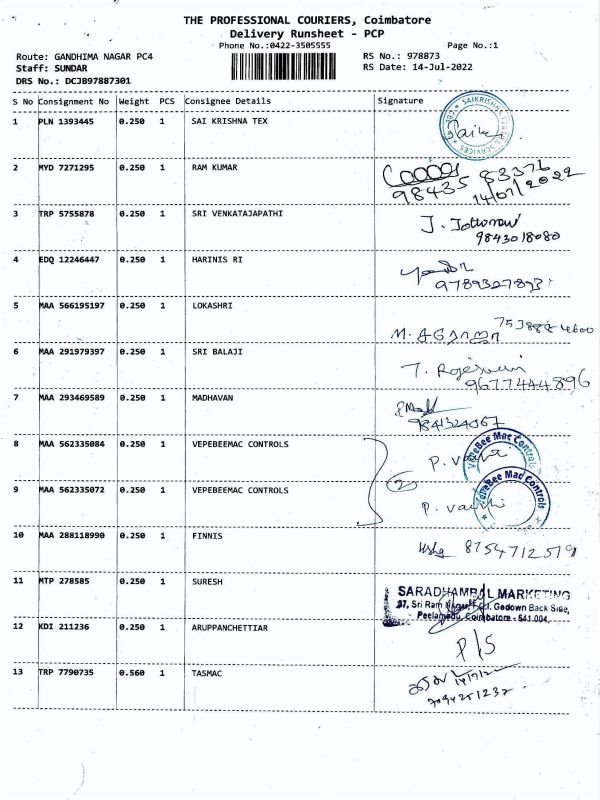 THE PROFESSIONAL COURIERS, Coimbatore
Delivery Runsheet - PCP
Phone No.:0422-3505555 Page No.:1
Route: GANDHIMA NAGAR PC4 RS No.: 978873
Staff: SUNDAR RS Date: 14-Jul-2022
DRS No.: DCJB97887301
S No Consignment No Weight PCS Consignee Details Signature
1 PLN 1393445 0.250 1 SAI KRISHNA TEX
2 MYD 7271295 0.250 1 RAM KUMAR
98435 83376
14/07/2022
3 TRP 5755878 0.250 1 SRI VENKATAJAPATHI
9843018080
4 EDQ 12246447 0.250 1 HARINIS RI
5 MAA 566195197 0.250 1 LOKASHRI
6 MAA 291979397 0.250 1 SRI BALAJI
9677444896
7 MAA 293469589 0.250 1 MADHAVAN
9841324067
8 MAA 562335084 0.250 1 VEPEBEEMAC CONTROLS
VePeBee Mac Controls
2
9 MAA 562335072 0.250 1 VEPEBEEMAC CONTROLS
VePeBee Mac Controls
10 MAA 288118990 0.250 1 FINNIS
Usha 8754712579
11 MTP 278585 0.250 1 SURESH
SARADHAMBAL MARKETING
37, Sri Ram Nagar, Godown Back Side,
Peelamedu, Coimbatore - 641 004.
12 KDI 211236 0.250 1 ARUPPANCHETTIAR
P/S
13 TRP 7790735 0.560 1 TASMAC
7094251232